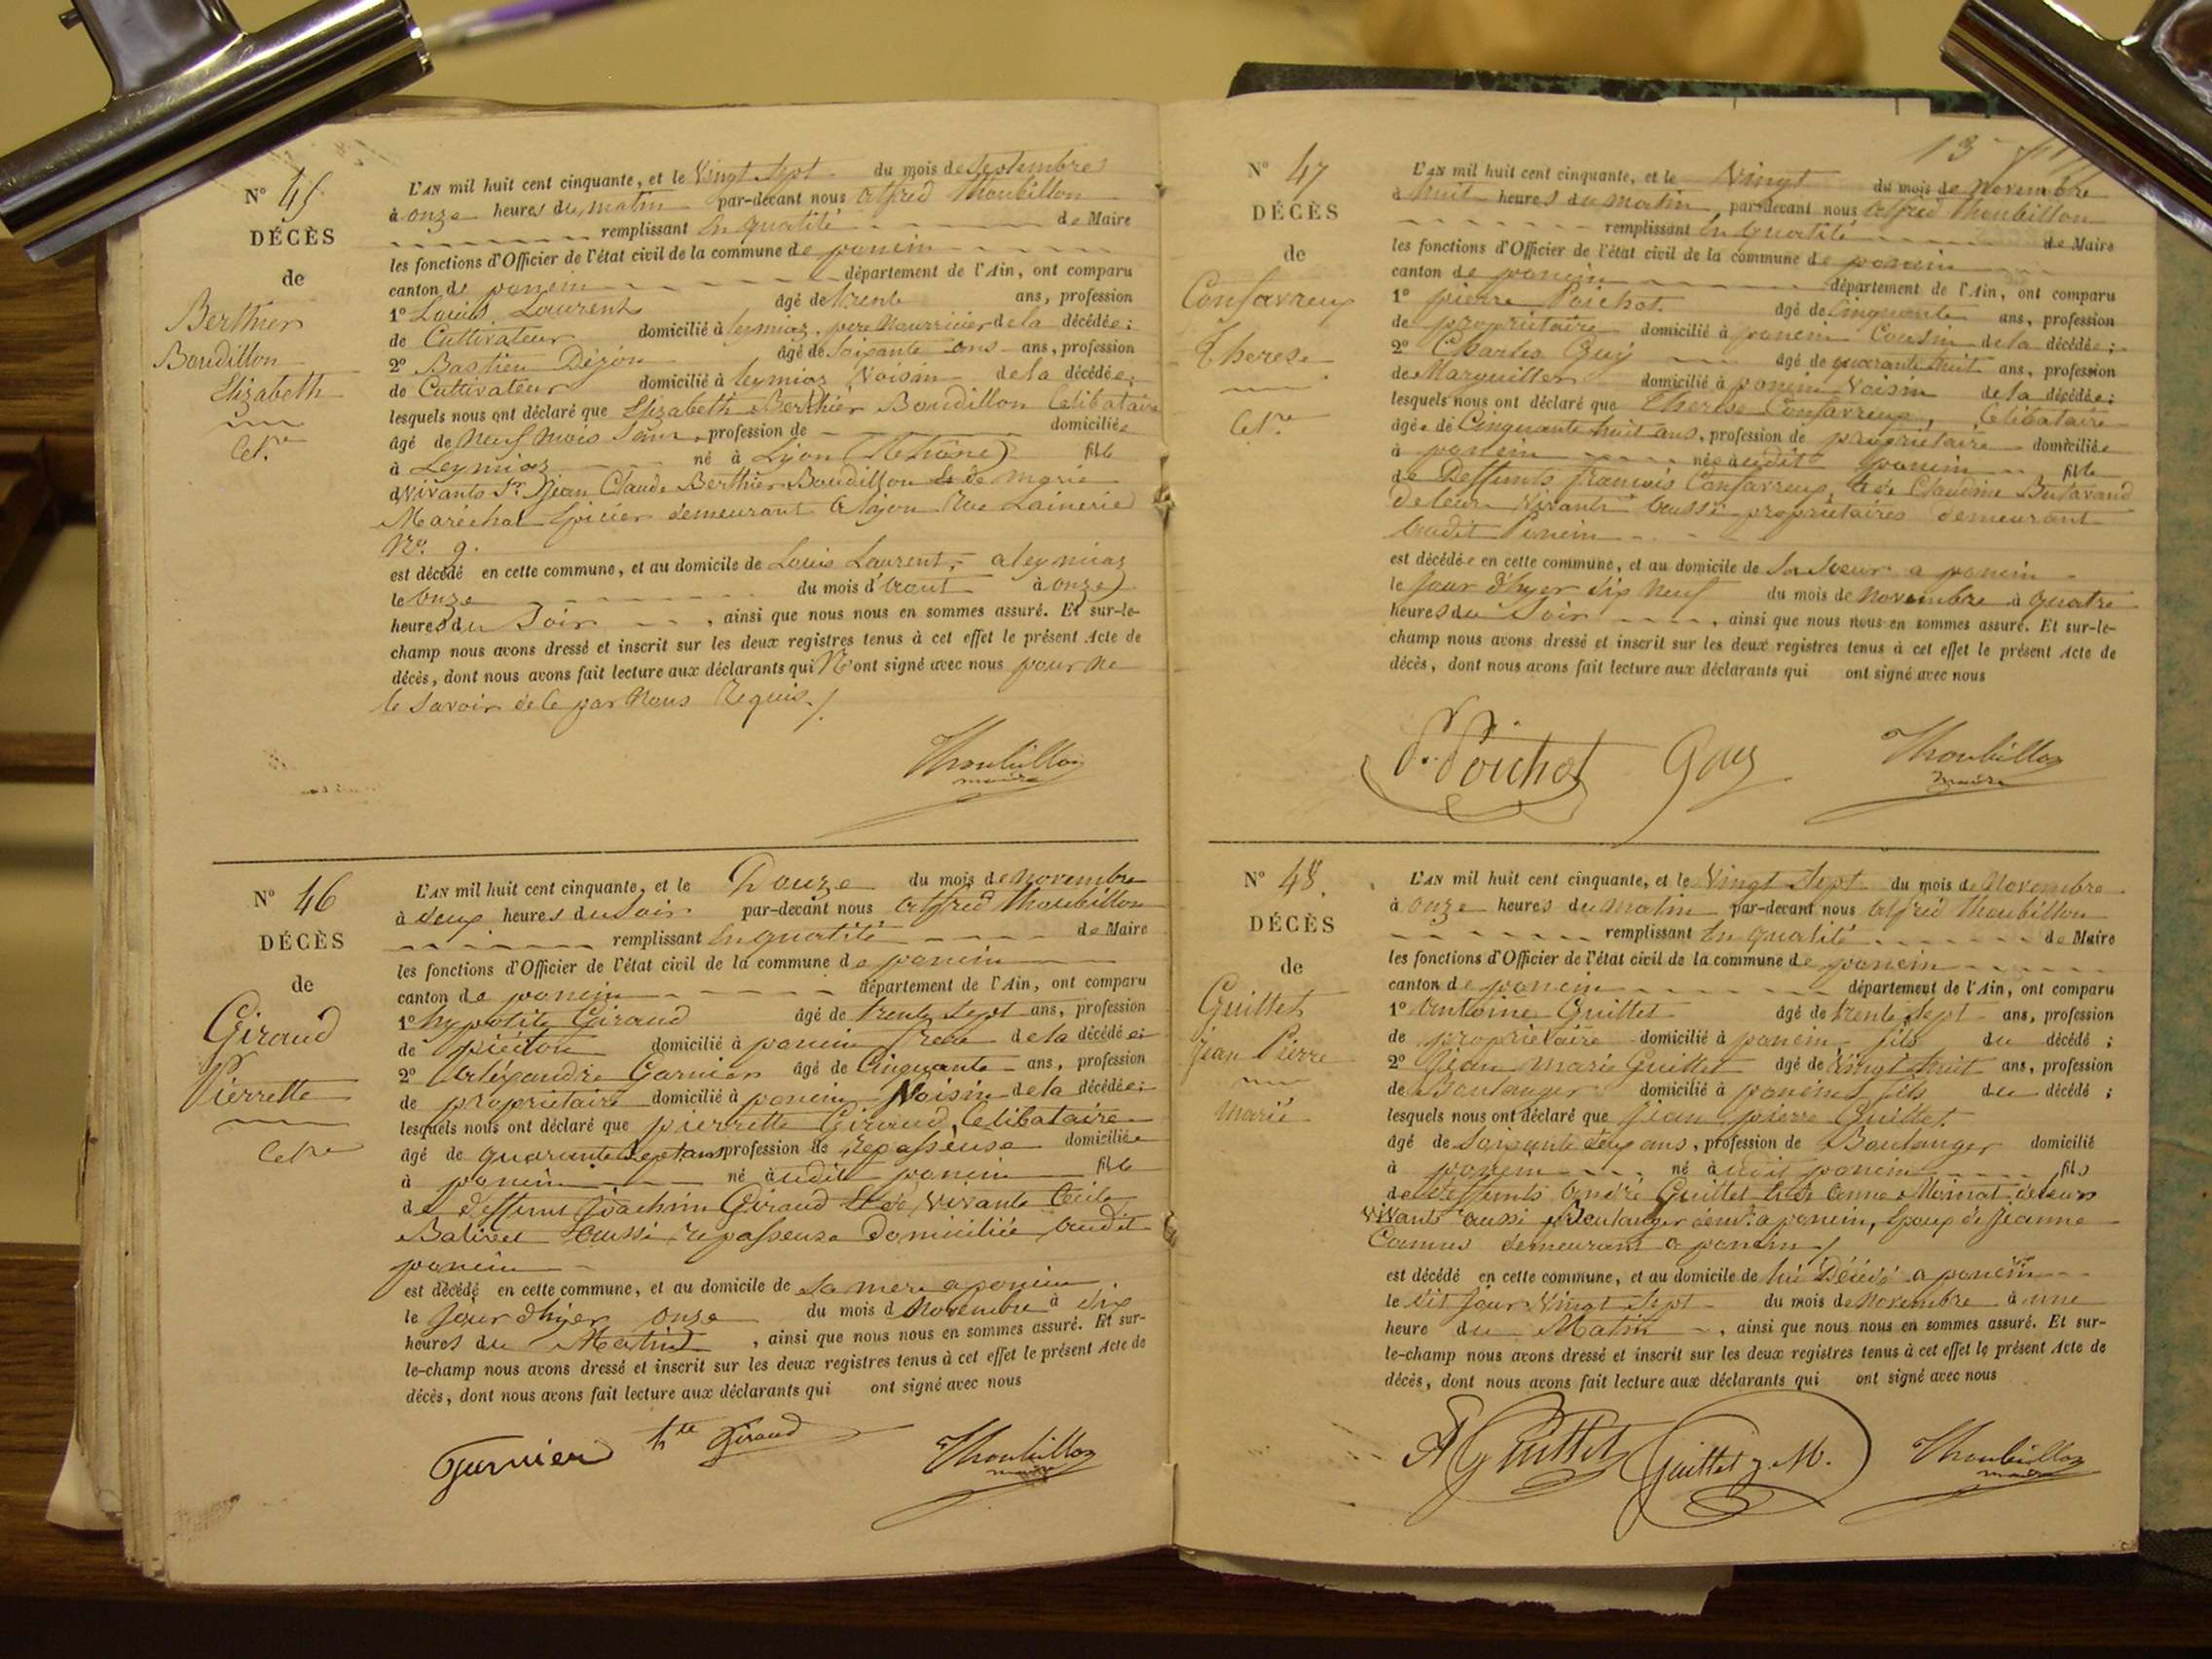 N° 45
DÉCÈS
de
Berthier
Boudillon
Elizabeth
Cel.re
L'AN mil huit cent cinquante, et le Vingt Sept du mois de Septembre
à onze heures du matin par-devant nous Alfred Thoubillon
remplissant En qualité de Maire
les fonctions d'Officier de l'état civil de la commune de poncin
canton de poncin département de l'Ain, ont comparu
1° Louis Laurent âgé de trente ans, profession
de Cultivateur domicilié à leymiaz, pere Nourricier de la décédée;
2° Bastien Dézon âgé de Soixante ans ans, profession
de Cultivateur domicilié à leymiaz Voisin de la décédée;
lesquels nous ont déclaré que Elizabeth Berthier Boudillon Celibataire
âgé de Neuf Mois profession de domiciliée
à Leymiaz né à Lyon (Rhône) fille
de Vivants Sr Jean Claude Berthier Boudillon & de Marie
Maréchal Epicier demeurant à Lyon Rue Lainerie
N° 9.
est décédé en cette commune, et au domicile de Louis Laurent, a leymiaz
le Onze du mois d'Aout à onze
heures du Soir, ainsi que nous nous en sommes assuré. Et sur-le-
champ nous avons dressé et inscrit sur les deux registres tenus à cet effet le présent Acte de
décès, dont nous avons fait lecture aux déclarants qui N'ont signé avec nous pour ne
le Savoir de ce par Nous Requis./
Thoubillon
maire
N° 46
DÉCÈS
de
Giraud
Pierrette
Celre
L'AN mil huit cent cinquante, et le Douze du mois de Novembre
à deux heures du Soir par-devant nous Alfred Thoubillon
remplissant En qualité de Maire
les fonctions d'Officier de l'état civil de la commune de poncin
canton de poncin département de l'Ain, ont comparu
1° hypolite Giraud âgé de trente Sept ans, profession
de piéton domicilié à poncin frere de la décédée;
2° Alexandre Garnier âgé de Cinquante ans, profession
de propriétaire domicilié à poncin Voisin de la décédée;
lesquels nous ont déclaré que pierrette Giraud, Celibataire
âgé de quarante Sept ans profession de Repasseuse domiciliée
à poncin né à udit poncin fille
de deffunt Joachim Giraud Et de Vivante Cécile
Balivet aussi repasseuse domiciliée audit
poncin
est décédé en cette commune, et au domicile de Sa mere a poncin.
le Jour d'hyer onze du mois d Novembre à dix
heures du Matin, ainsi que nous nous en sommes assuré. Et sur-
le-champ nous avons dressé et inscrit sur les deux registres tenus à cet effet le présent Acte de
décès, dont nous avons fait lecture aux déclarants qui ont signé avec nous
Garnier hte Giraud Thoubillon
maire
13
N° 47
DÉCÈS
de
Confavreux
Therese
Cel.re
L'AN mil huit cent cinquante, et le Vingt du mois de Novembre
à huit heures du matin, par-devant nous Alfred Thoubillon
remplissant En qualité de Maire
les fonctions d'Officier de l'état civil de la commune de poncin
canton de poncin département de l'Ain, ont comparu
1° pierre Poichot âgé de Cinquante ans, profession
de propriétaire domicilié à poncin Cousin de la décédée;
2° Charles Guy âgé de quarante huit ans, profession
de Marguiller domicilié à poncin Voisin de la décédée;
lesquels nous ont déclaré que Therese Confavreux, Celibataire
âgée de Cinquante huit ans, profession de propriétaire domiciliée
à poncin née à udit poncin fille
de Deffunts francois Confavreux, & de Claudine Butavand
de leur Vivants aussi propriétaires demeurant
audit Poncin
est décédée en cette commune, et au domicile de Sa Soeur a poncin
le Jour d'hyer dix Neuf du mois de Novembre à quatre
heures du Soir, ainsi que nous nous en sommes assuré. Et sur-le-
champ nous avons dressé et inscrit sur les deux registres tenus à cet effet le présent Acte de
décès, dont nous avons fait lecture aux déclarants qui ont signé avec nous
P. Poichot Guy Thoubillon
maire
N° 48.
DÉCÈS
de
Guillet
Jean Pierre
Marié
L'AN mil huit cent cinquante, et le Vingt Sept du mois de Novembre
à onze heures du matin par-devant nous Alfred Thoubillon
remplissant En qualité de Maire
les fonctions d'Officier de l'état civil de la commune de poncin
canton de poncin département de l'Ain, ont comparu
1° Antoine Guillet âgé de trente Sept ans, profession
de propriétaire domicilié à poncin, fils du décédé;
2° Jean Marie Guillet âgé de Vingt huit ans, profession
de Boulanger domicilié à poncin fils du décédé;
lesquels nous ont déclaré que Jean pierre Guillet
âgé de Soixante deux ans, profession de Boulanger domicilié
à poncin né à udit poncin fils
de deffunts André Guillet & de Anne Moinat de leurs
Vivants aussi Boulanger demt a poncin, Epoux de Jeanne
Camus demeurant a poncin /
est décédé en cette commune, et au domicile de lui Décédé a poncin
le dit Jour Vingt Sept du mois de Novembre à une
heure du Matin, ainsi que nous nous en sommes assuré. Et sur-
le-champ nous avons dressé et inscrit sur les deux registres tenus à cet effet le présent Acte de
décès, dont nous avons fait lecture aux déclarants qui ont signé avec nous
A Guillet Guillet J. M. Thoubillon
maire